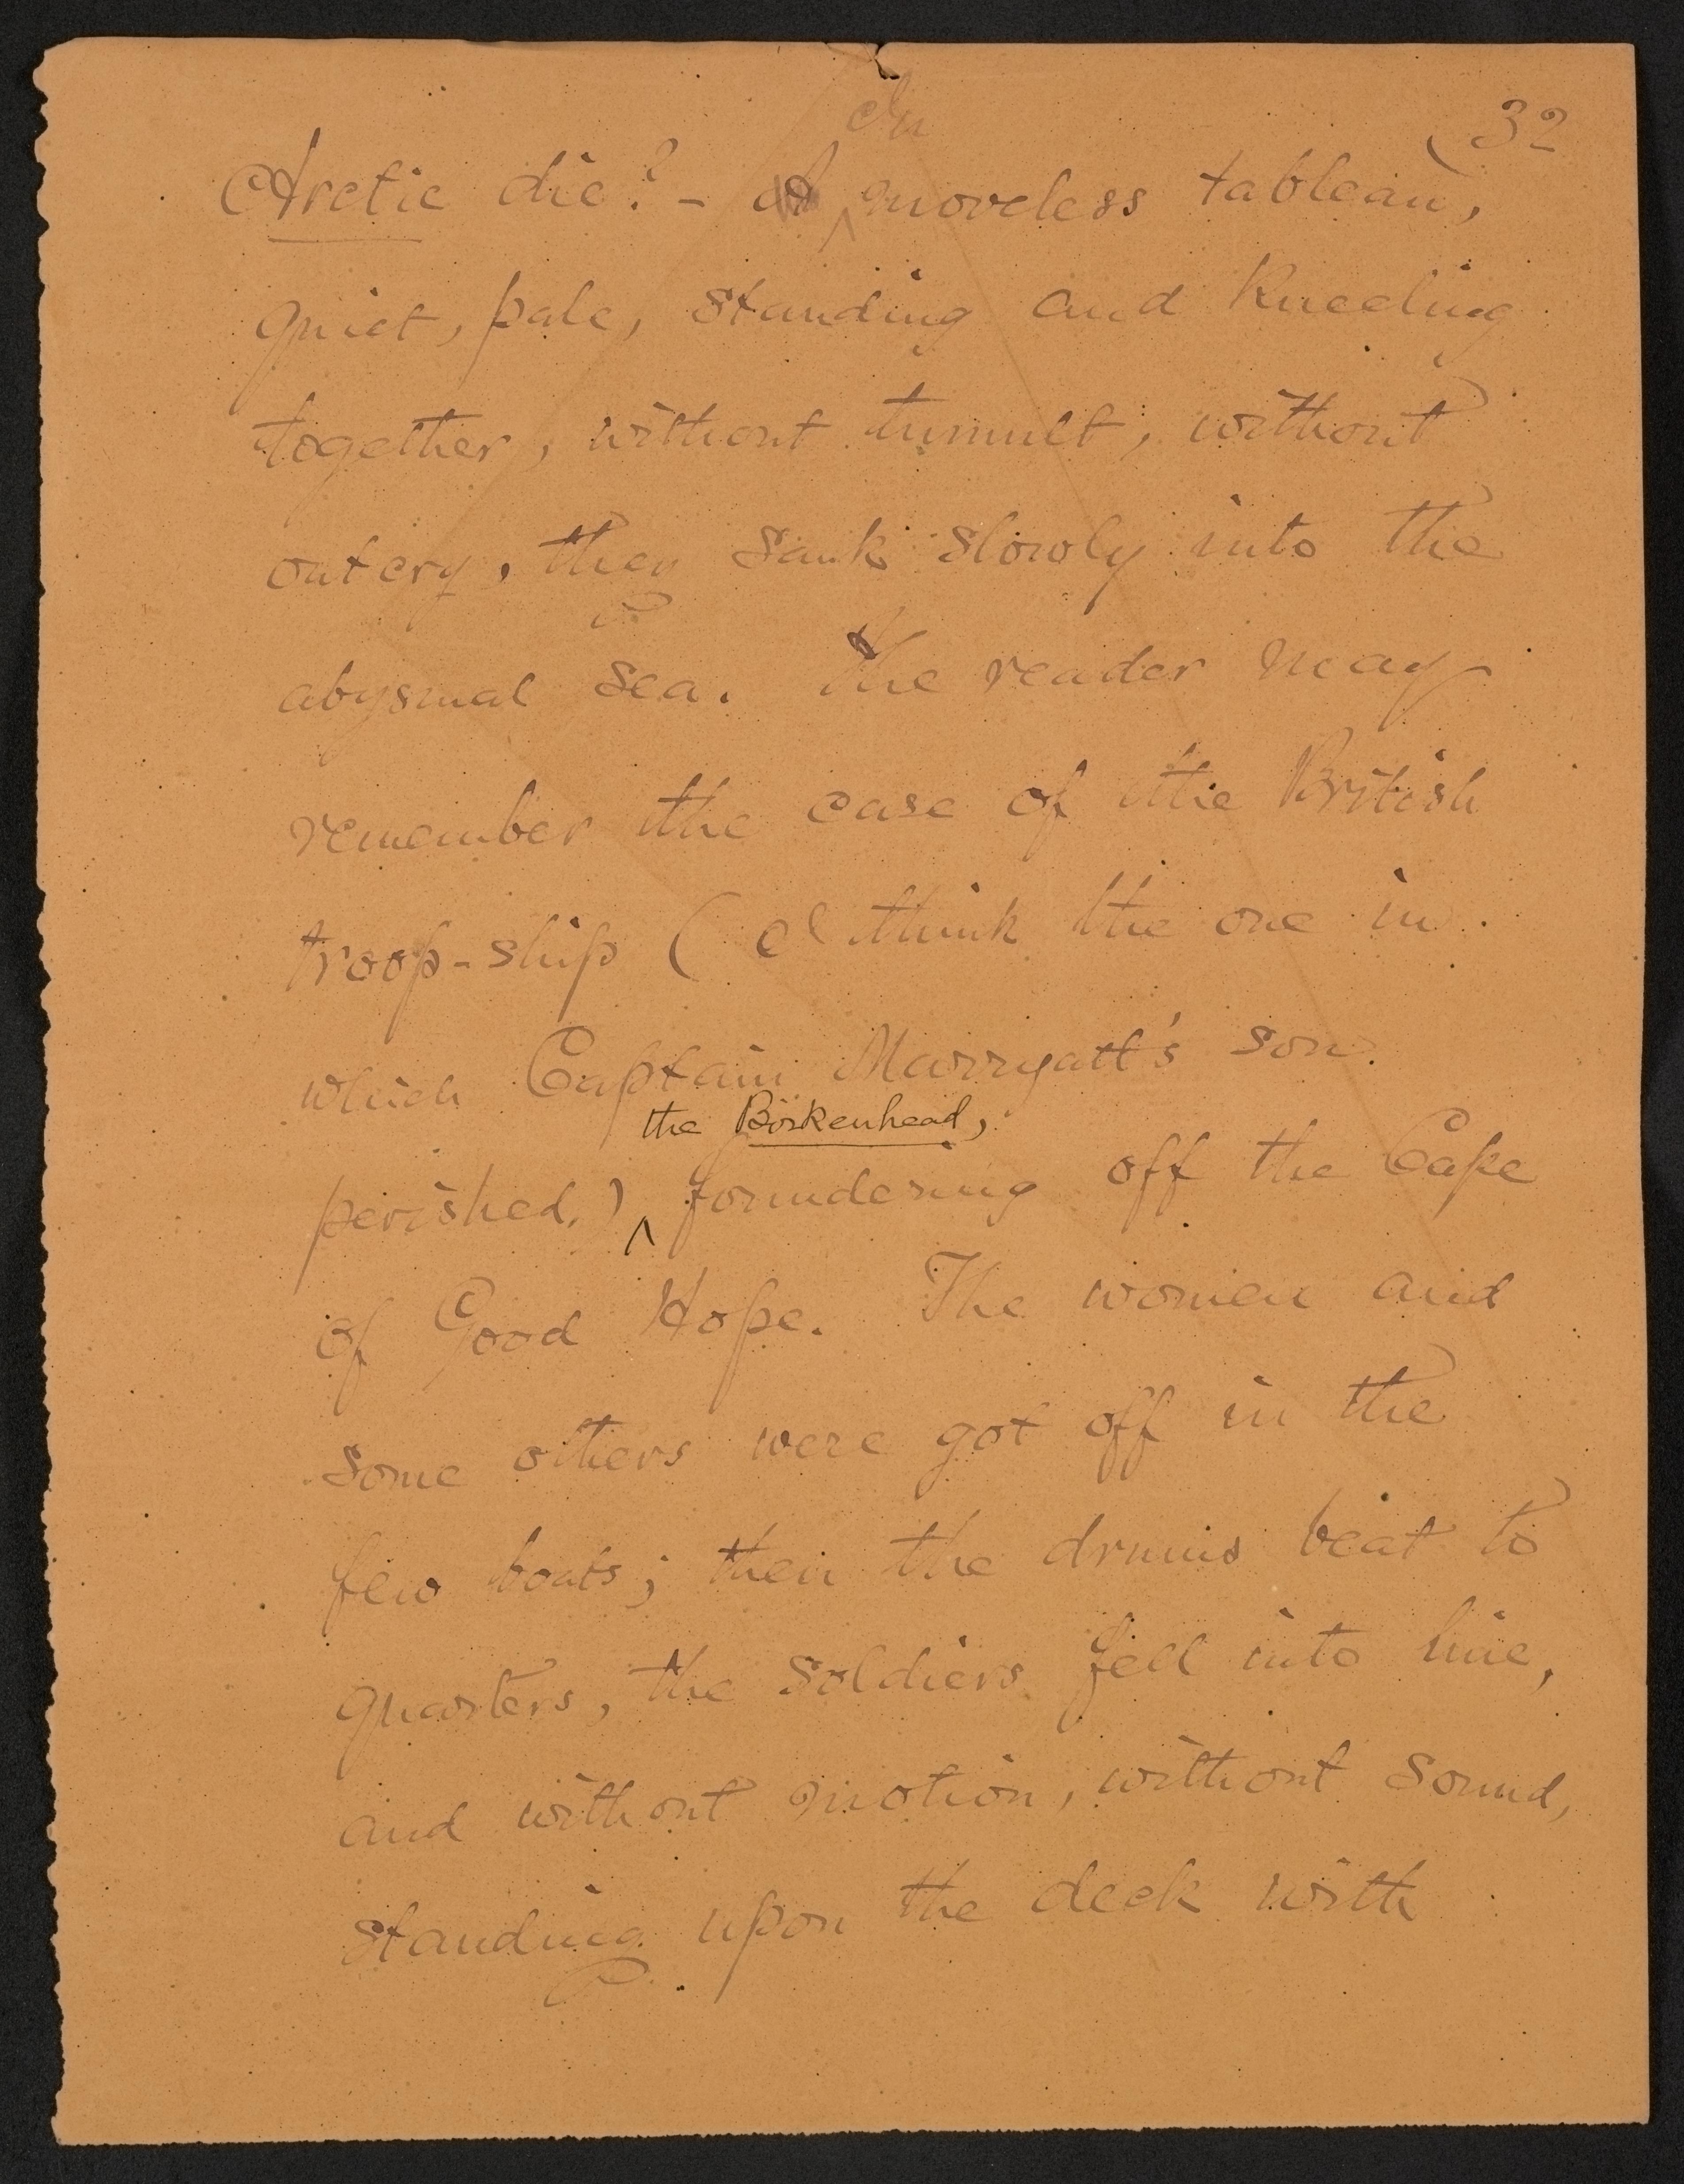 32
In
Arctic die? - A moveless tableau,
quiet, pale, standing and kneeling
together, without tumult, without
outcry, they sank slowly into the
abysmal sea. The reader may
remember the case of the British
troop-ship (I think the one in
which Captain Marryatt's son
the Birkenhead,
perished,) foundering off the Cape
of Good Hope. The women and
some others were got off in the
few boats; then the drums beat to
quarters, the soldiers fell into line,
and without motion, without sound,
standing upon the deck with